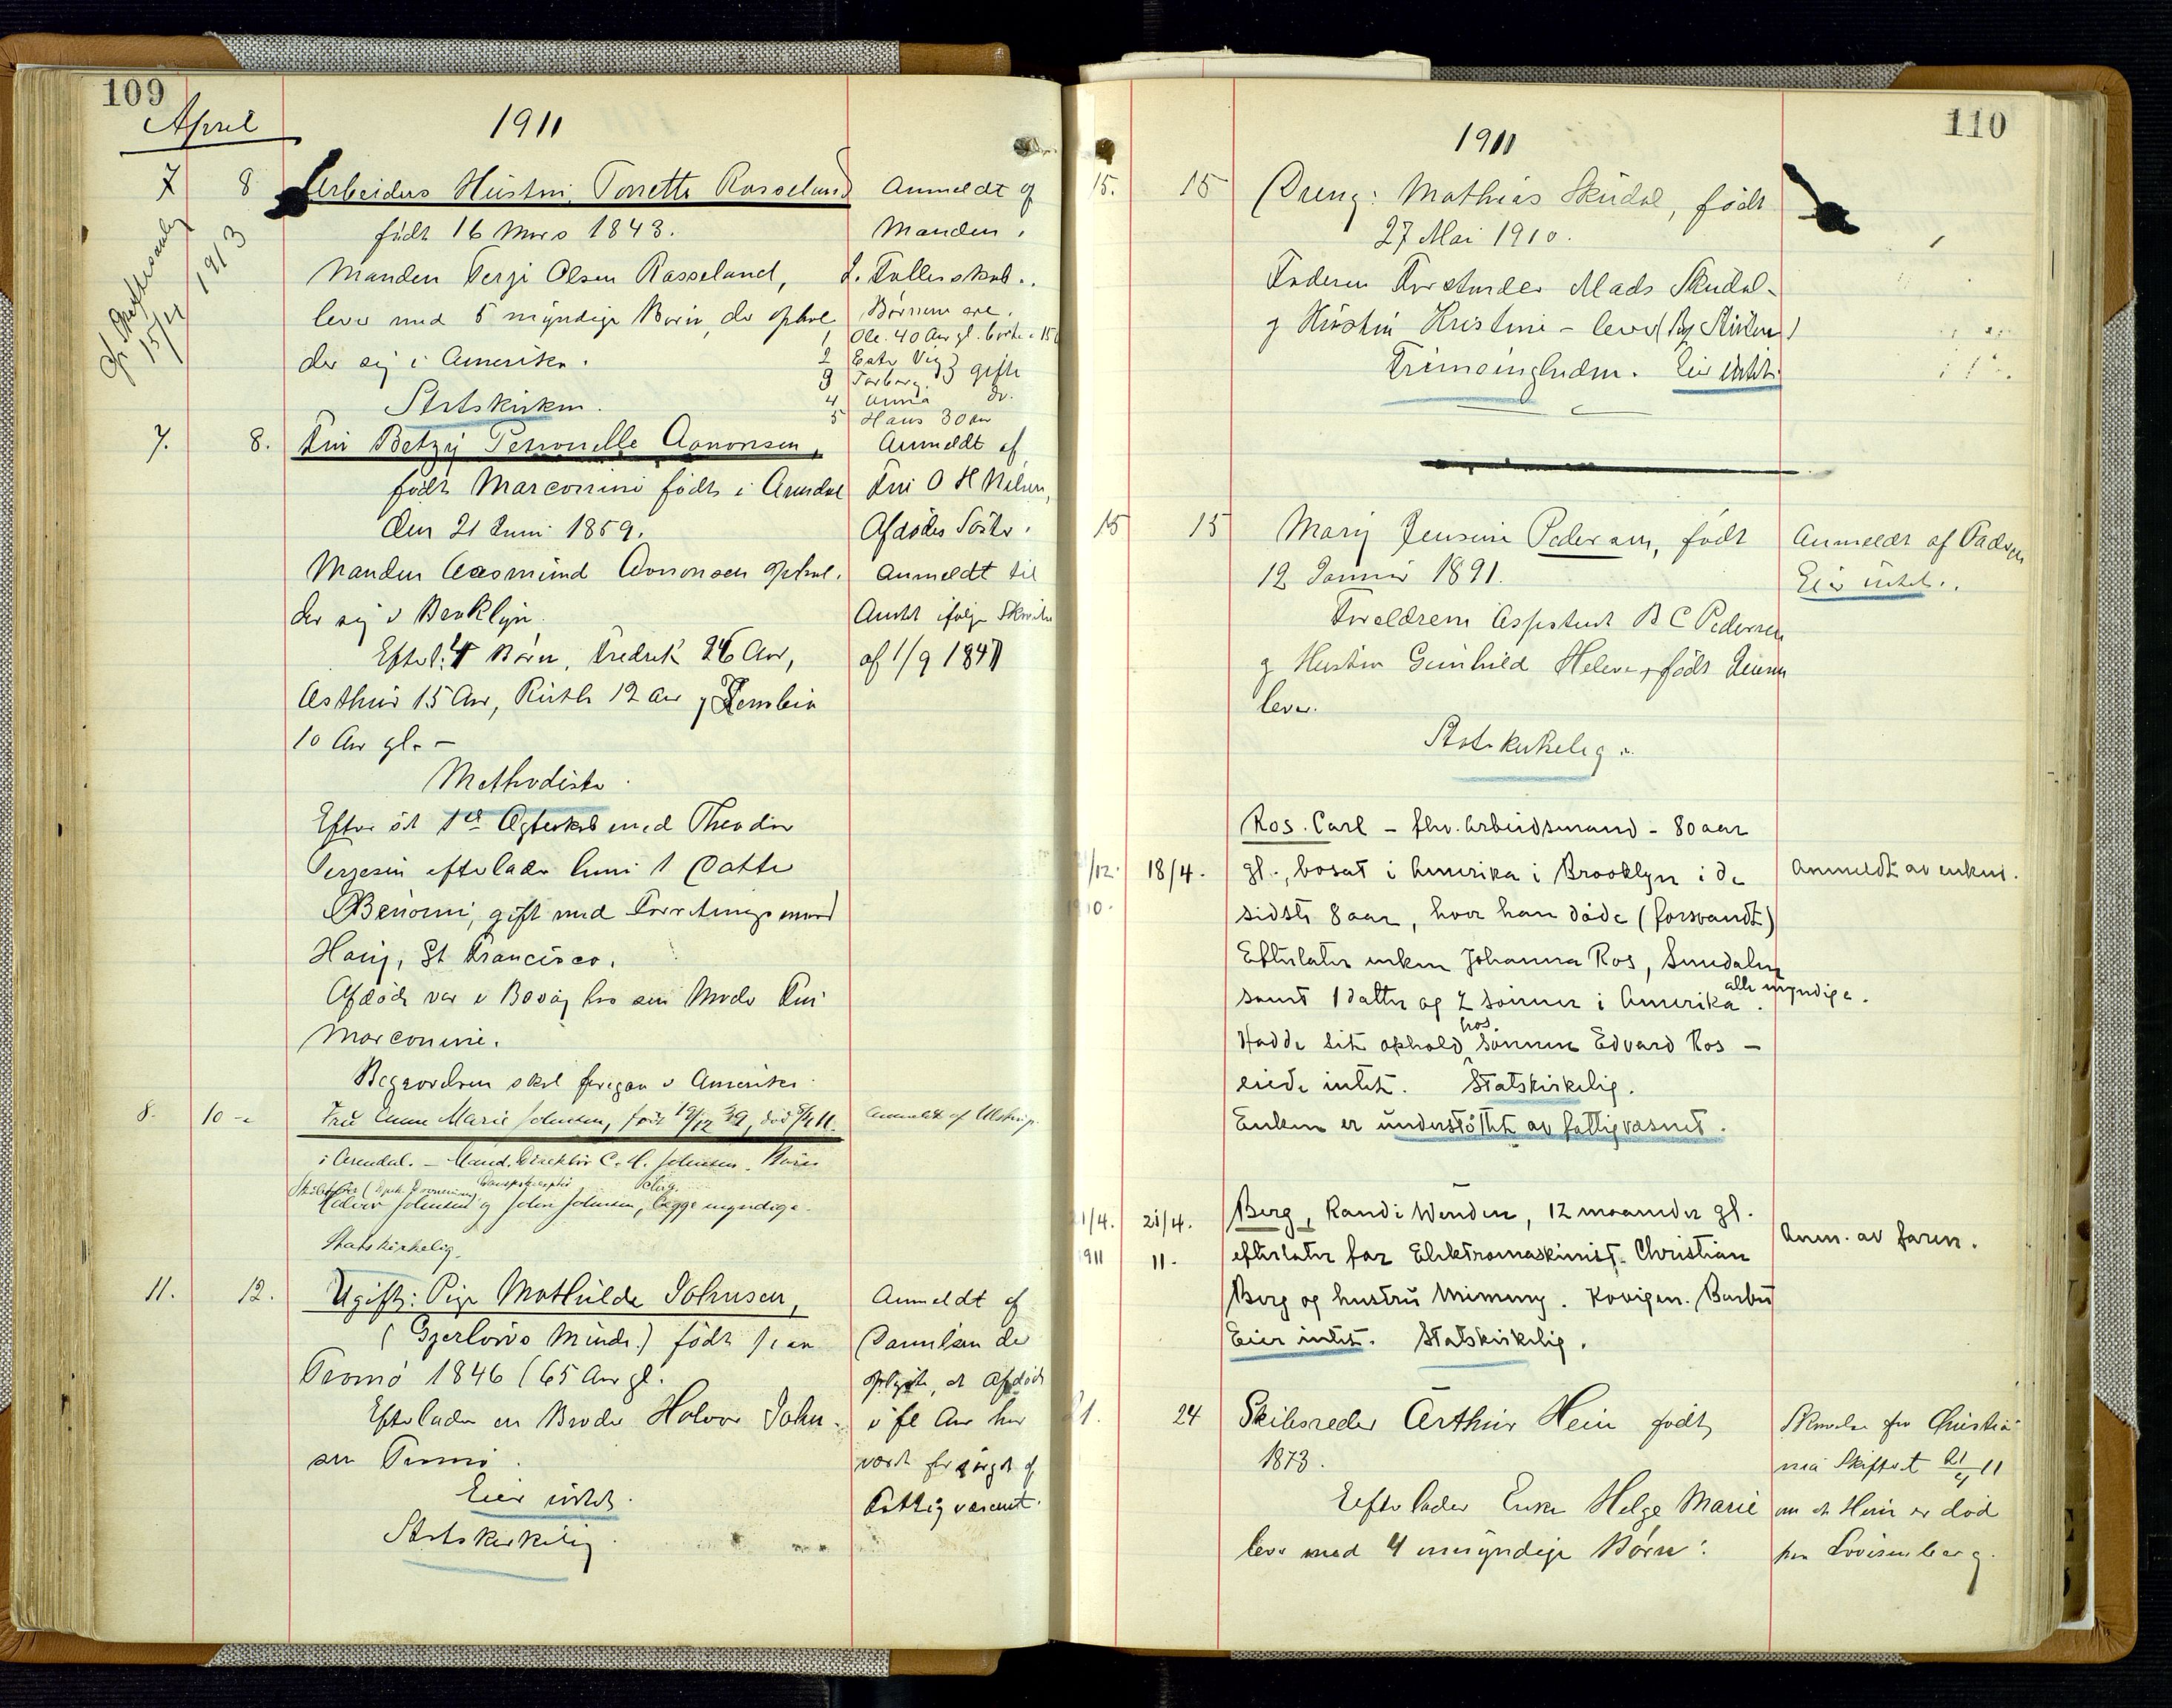 109
April
1911
7 8 Arbeiders Hustru, Tonette Rosseland
født 16 Mars 1843.
Manden Terje Olsen Rosseland,
lever med 5 myndige Børn, der ophol
der sig i Amerika.
Statskirken.
15/4 1913
Anmeldt af
Manden.
Børnene ere.
1 Ole. 40 Aar gl.
2
3 Torborg, gifte
4 Anna do.
5 Hans 30 Aar
7. 8. Fru Betzy Petronelle Aanonsen,
født Marconini født i Arendal
den 21 Juni 1859.
Manden Aasmund Aanonsen ophol-
der sig i Broklyn.
Efterl. 4 Børn, Fredrik 26 Aar,
Arthur 15 Aar, Ruth 12 Aar og
10 Aar gl. -
Methodist.
Anmeldt af
Fru O H Nilsen,
Afdødes Søster.
Anmeldt til
Amtet ifølge Skrivelse
af 1/9 1847
Efter sit 1st Ægteskab med Theodor
Terjesen efterlader hun 1 Datter
Benomi, gift med Forretningsmand
Hauj, St Francisco.
Afdøde var i Besøg hos sin Moder Fru
Marconini.
Begravelsen skal foregaa i Amerika.
8. 10 Fru Anne Marie Johnsen, født 19/12 39, død 8/4 11.
i Arendal. - Mand, Direktør C. H. Johnsen. Børn
Johnsen og John Johnsen, begge myndige.
Statskirkelig.
Anmeldt af Ulstrup.
11. 12. Ugift: Pige Mathilde Johnsen,
(Gjerløws Minde) født paa
Tromø 1846 (65 Aar gl.
Efterlader en Broder Halvor John-
sen Tromø.
Eier intet.
Statskirkelig.
Anmeldt af
der
oplyste, at Afdøde
i fl Aar har
været forsørget af
Fattigvæsenet.
110
1911
15. 15 Dreng: Mathias Skudal, født
27 Mai 1910.
Faderen Forstander Mads Skudal
og Hustru Kristine - lever
Frimenigheden. Eier intet.
15 15 Mary Jensine Pedersen, født
12 Januar 1891.
Forældrene Assistent B C Pedersen
og Hustru Gunhild Helene, født Jensen
lever.
Statskirkelig.
Anmeldt af Faderen
Eier intet.
Ros. Carl - fhv. Arbeidsmand - 80 aar
/12. 18/4. gl., bosat i Amerika i Brooklyn i de
1910. sidste 8 aar, hvor han døde (forsvandt)
Efterlater enken Johanna Ros,
samt 1 datter og 2 sønner i Amerika. alle myndige.
Hadde sit ophold hos sønnen Edvard Ros -
eiede intet. Statskirkelig.
Enken er understøttet av fattigvæsnet.
Anmeldt av enken.
21/4. 21/4. Berg, Randi Wenden, 12 maaneder gl.
1911 11. efterlater far Elektromaskinist Christian
Berg og hustru Mimmy. Kovigen. Barbu
Eier intet. Statskirkelig.
Anm. av faren.
21. 24 Skibsreder Arthur Hein født
1873.
Efterlader Enke Helge Marie
lever med 4 umyndige Børn:
Skrivelse fra Christia-
nia Skifteret 21/4 11
om at Hein er død
paa Lovisenberg.